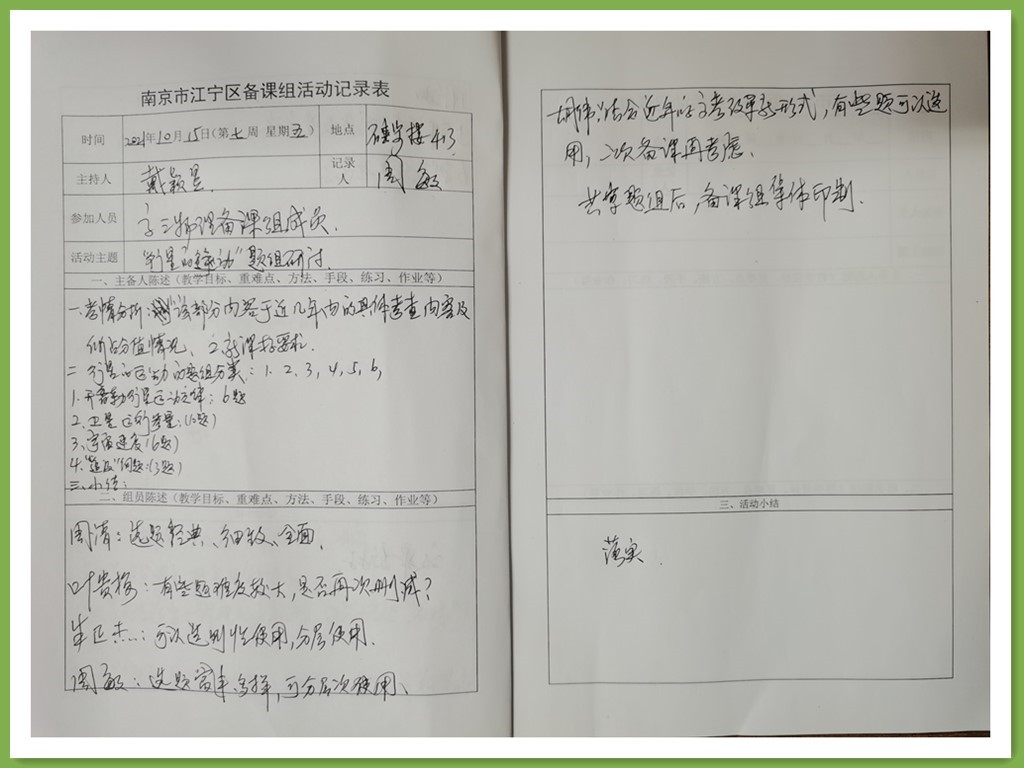 南京市江宁区备课组活动记录表
时间 2021年10月15日(第七周 星期五) 地点 楼413
主持人 戴颖昱 记录人 周敏
参加人员 高三物理备课组成员.
活动主题 "行星的运动"题组研讨.
一、主备人陈述(教学目标、重难点、方法、手段、练习、作业等)
一.考情分析:该部分内容于近几年内的具体考查内容及
所占分值情况、
二 行星的运动的题组分类:1. 2. 3, 4, 5, 6,
1.开普勒行星运动定律:6题
2.卫星运行参量:(12题)
3.宇宙速度(6题)
4."追及"问题:(3题)
三.小结:
二、组员陈述(教学目标、重难点、方法、手段、练习、作业等)
周清:选题经典、细致、全面.
叶贵梅:有些题难度较大,是否再次删减?
可以选别性使用,分层使用.
周敏:选题丰多样,可分层次使用、
结合近年的高考改革新形式,有些题可以选
用,二次备课再考虑.
共享题组后,备课组集体印制.
三、活动小结
落实.